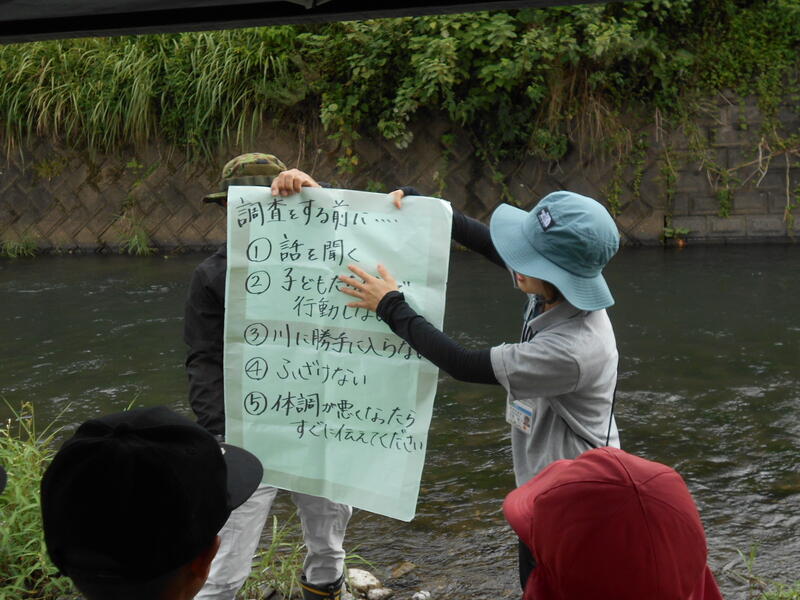 調査をする前に‥‥
① 話を聞く
② 子どもた
行動しな
③ 川に勝手に入らない
④ ふざけない
⑤ 体調が悪くなったら
すぐに伝えてください